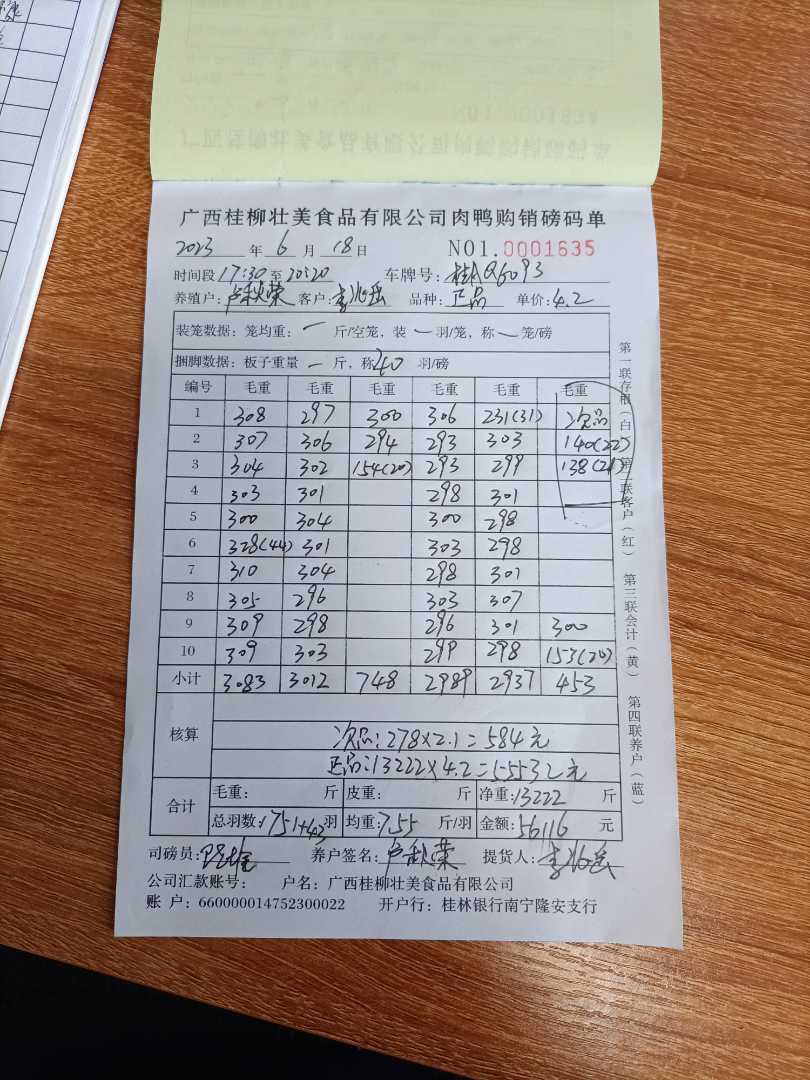 广西桂柳壮美食品有限公司肉鸭购销磅码单
2023 年 6 月 18 日 NO1.0001635
时间段 17:30 至 20:20 车牌号: 桂AQ6093
养殖户: 卢秋荣 客户: 李兆岳 品种: 正品 单价: 4.2
装笼数据: 笼均重: 一 斤/空笼, 装 一 羽/笼, 称 一 笼/磅
捆脚数据: 板子重量 一 斤, 称 240 羽/磅
编号 毛重 毛重 毛重 毛重 毛重 毛重
1 308 297 300 306 231(31) 次品
2 307 306 294 293 303 140(22)
3 304 302 154(20) 293 299 138(21)
4 303 301 298 301
5 300 304 300 298
6 328(44) 301 303 298
7 310 304 298 301
8 305 296 303 307
9 309 298 296 301 300
10 309 303 299 298 153(20)
小计 3083 3012 748 2989 2937 453
核算
次品: 278×2.1=584元
正品: 13222×4.2=55532元
合计 毛重: 斤 皮重: 斤 净重: 13222 斤
总羽数: 1751+43 羽 均重: 7.55 斤/羽 金额: 56116 元
司磅员: 养户签名: 卢秋荣 提货人: 李兆岳
公司汇款账号: 户名: 广西桂柳壮美食品有限公司
账 户: 660000014752300022 开户行: 桂林银行南宁隆安支行
第一联存根(白) 第二联客户(红) 第三联会计(黄) 第四联养户(蓝)